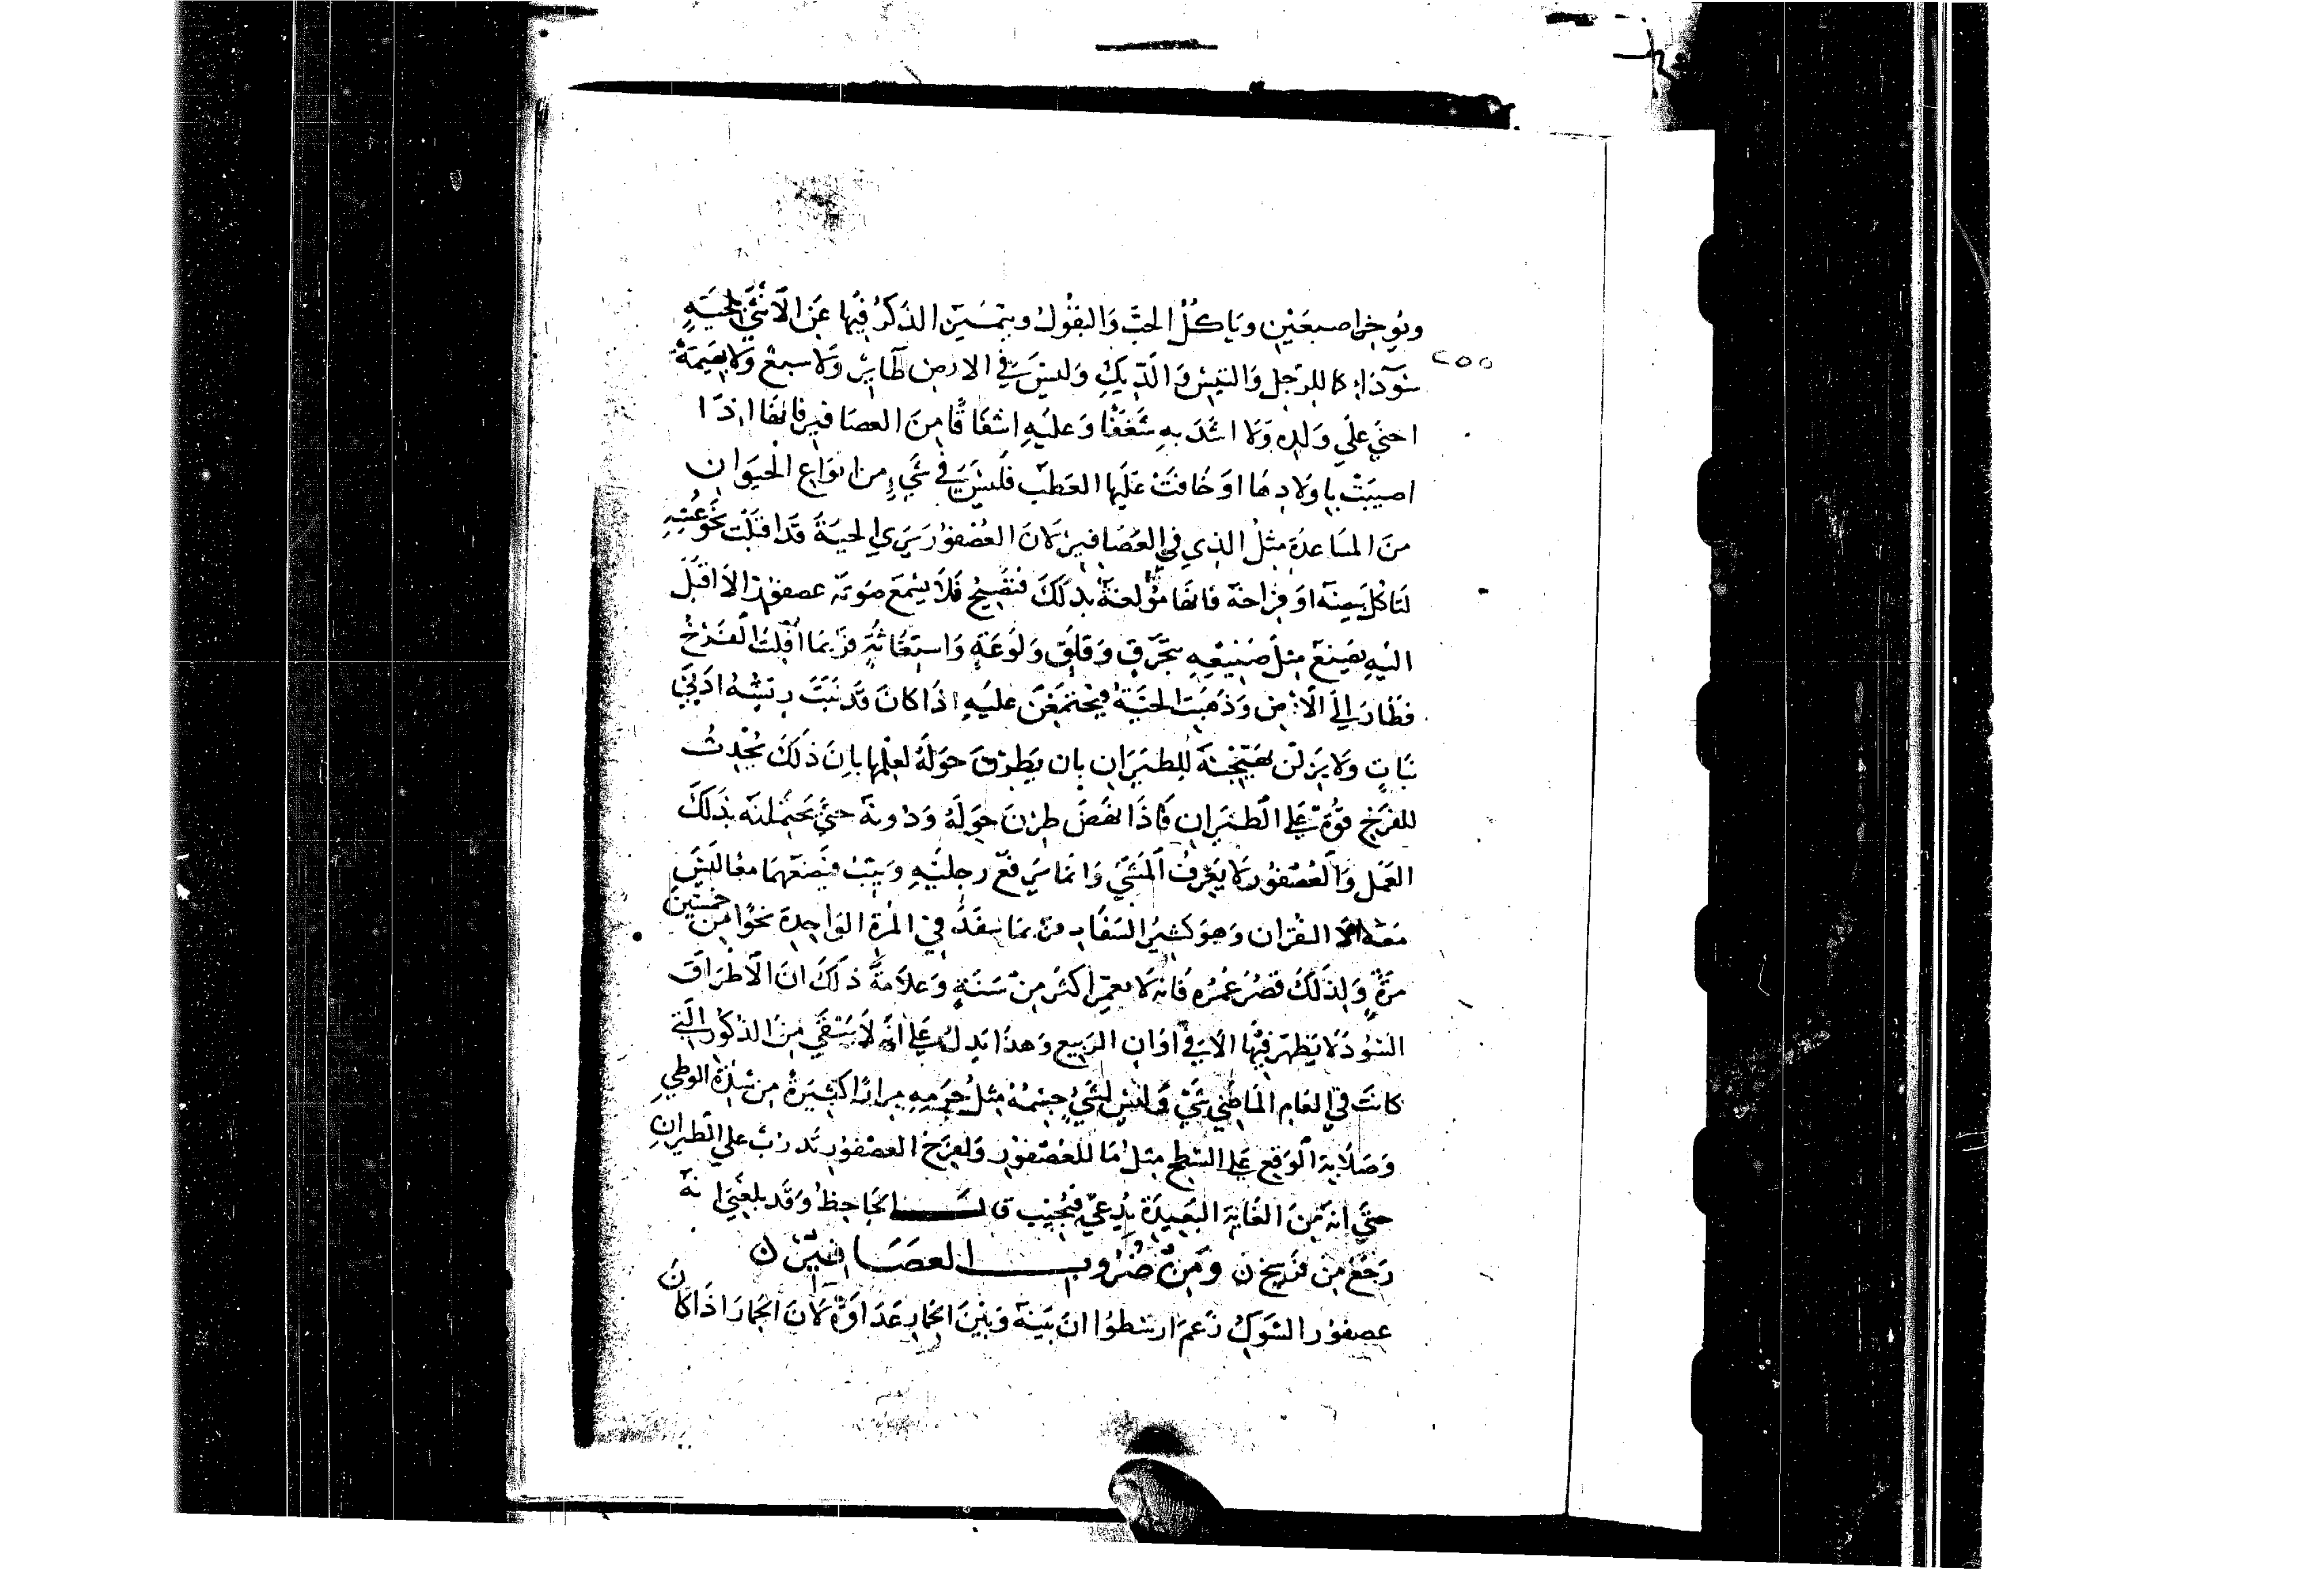 ويوخر اصبعين وياكل الحب والبقول ويتميز الذكر فيها عن الانثي بلحية
٢٥٥
سوداء كالرجل والتيس والديك وليس في الارض طاير ولا سبع ولا بهيمة
احني علي ولده ولا اشد به شغفا وعليه اشفاقا من العصافير فانها اذا
اصيبت باولادها او خافت عليها العطب فليس في شيء من انواع الحيوان
من المساعدة مثل الذي في العصافير لان العصفور يري الحية قد اقبلت نحو عشه
لتاكل بيضه او فراخه فانها مولعة بذلك فيصيح فلا يسمع صوته عصفور الا اقبل
اليه يصنع مثل صنيعه بتحرق وقلق ولوعة واستغاثة فربما افلت الفرخ
فطار الي الارض وذهبت الحية فيجتمعن عليه اذا كان قد نبت ريشه ادني
نبات ولا يزلن يهيجنه للطيران بان يطرن حوله لعلمها بان ذلك يحدث
للفرخ قوة علي الطيران فاذا نهض طرن حوله ودونه حتي يحتملنه بذلك
العمل والعصفور لا يعرف المشي وانما يرفع رجليه ويثب فيضعهما معا ليس
معه الا النقزان وهو كثير السفاد فربما سفد في المرة الواحدة نحوا من خمسين
مرة ولذلك قصر عمره فانه لا يعمر اكثر من سنة وعلامة ذلك ان الاطراق
السود لا يظهر فيها الا في اوان الربيع وهذا يدل علي انه لا يبقي من الذكور التي
كانت في العام الماضي شي وليس لشيء جسمه مثل جرمه مرارا كثيرة من شدة الوطي
وصلابة الوقع علي السطح مثل ما للعصفور ولفرخ العصفور تدرب علي الطيران
حتي انه من الغاية البعيدة يدعي فيجيب قال الجاحظ وقد بلغني انه
رجع من فرسخ ن ومن ضروب العصافير ن
عصفور الشوك زعم ارسطوا ان بينه وبين الحمار عداوة لان الحمار اذا كان